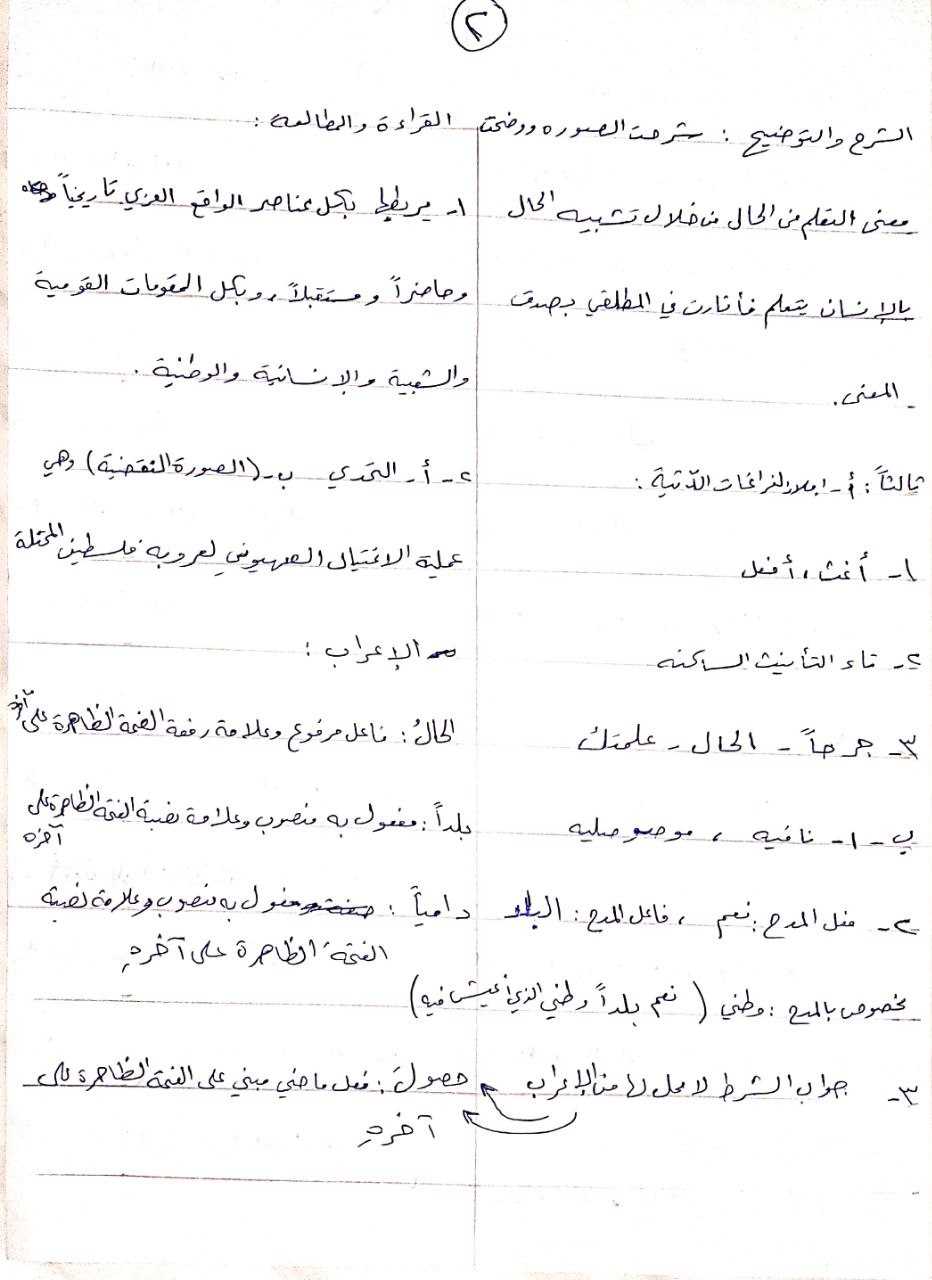 ٢
الشرح والتوضيح : شرحت الصوره ووضحت
معنى التعلم من الحال من خلال تشبيه الحال
بالإنسان يتعلم فأثارت في المطلقي بصدق
المعنى.
ثالثاً : أ- املأ الفراغات الآتية :
١-
٢- تاء التأنيث الساكنه
٣- جرحاً - الحال - علمتك
ب - ١- نافيه ، موصوليه
٢- فعل المدح : نعم ، فاعل المدح : البلد
مخصوص بالمدح : وطني ( نعم بلداً وطني الذي أعيش فيه )
٣- جواب الشرط لا محل لها من الإعراب
القراءة والمطالعة :
١- يربطها بكل عناصر الواقع العربي تاريخياً
وحاضراً ومستقبلاً، وبكل المقومات القومية
والشعبية والإنسانية والوطنية .
٢- أ- التحدي ب- (الصورة النقضية) وهي
عملية الاغتيال الصهيوني لعروبه فلسطين المحتلة
الإعراب :
الحالُ : فاعل مرفوع وعلامة رفعة الضمة الظاهرة على آخره
بلداً : مفعول به منصوب وعلامة نصبة الفتحة الظاهرة على
آخره
دامياً : مفعول به منصوب وعلامة نصبة
الفتحة الظاهرة على آخرهِ
: فعل ماضي مبني على الفتحة الظاهرة على
آخرهِ